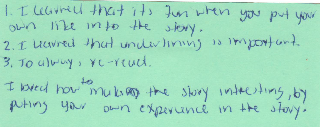 1. I learned that it's fun when you put your
own like into the story.
2. I learned that underlining is important.
3. To always re-read.
I loved how to make the story intresting, by
puting your own experience in the story.